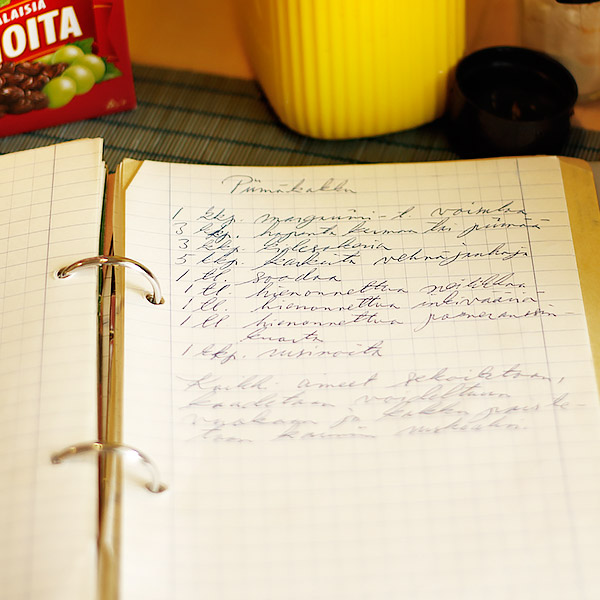 ALAISIA
OITA
Piimäkakku
1 kkp. margariini- t. voisulaa
3 kkp. hapanta kermaa tai piimää
3 kkp. hiesokeria
5 kkp. karkeita vehnäjauhoja
1 tl soodaa
1 tl hienonnettua neilikkaa
1 tl. hienonnettua inkivääriä
1 tl hienonnettua pomeranssin-
kuorta
1 kkp. rusinoita
Kaikki aineet sekoitetaan,
kaadetaan voideltuun
vuokaan ja kakku paiste-
taan kauniin ruskeaksi.